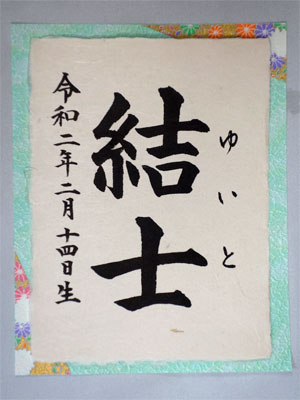 ゆいと
結士
令和二年二月十四日生